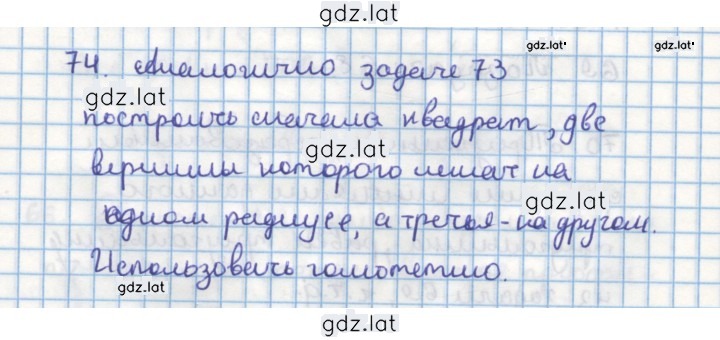 gdz.lat
gdz.lat gdz.lat
74. Аналогично задаче 73
gdz.lat
построить сначала квадрат, две
gdz.lat
вершины которого лежат на
gdz.lat
одном радиусе, а третья - на другом.
Использовать гомотетию.
gdz.lat
gdz.lat